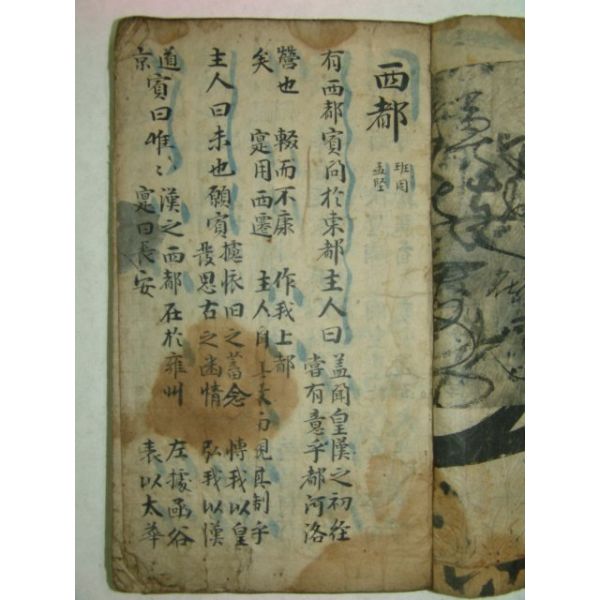 西都
班固
孟堅
有西都賓問於東都主人曰
盖聞皇漢之初経
嘗有意乎都河洛
營也 輟而不康 作我上都
矣 寔用西遷 主人 見其制乎
主人曰未也願賓
攄怅旧之蓄念 博我以皇
發思古之幽情 弘我以漢
道
京
賓曰唯〻漢之西都在於雍州 左據函谷
寔曰長安 表以太華